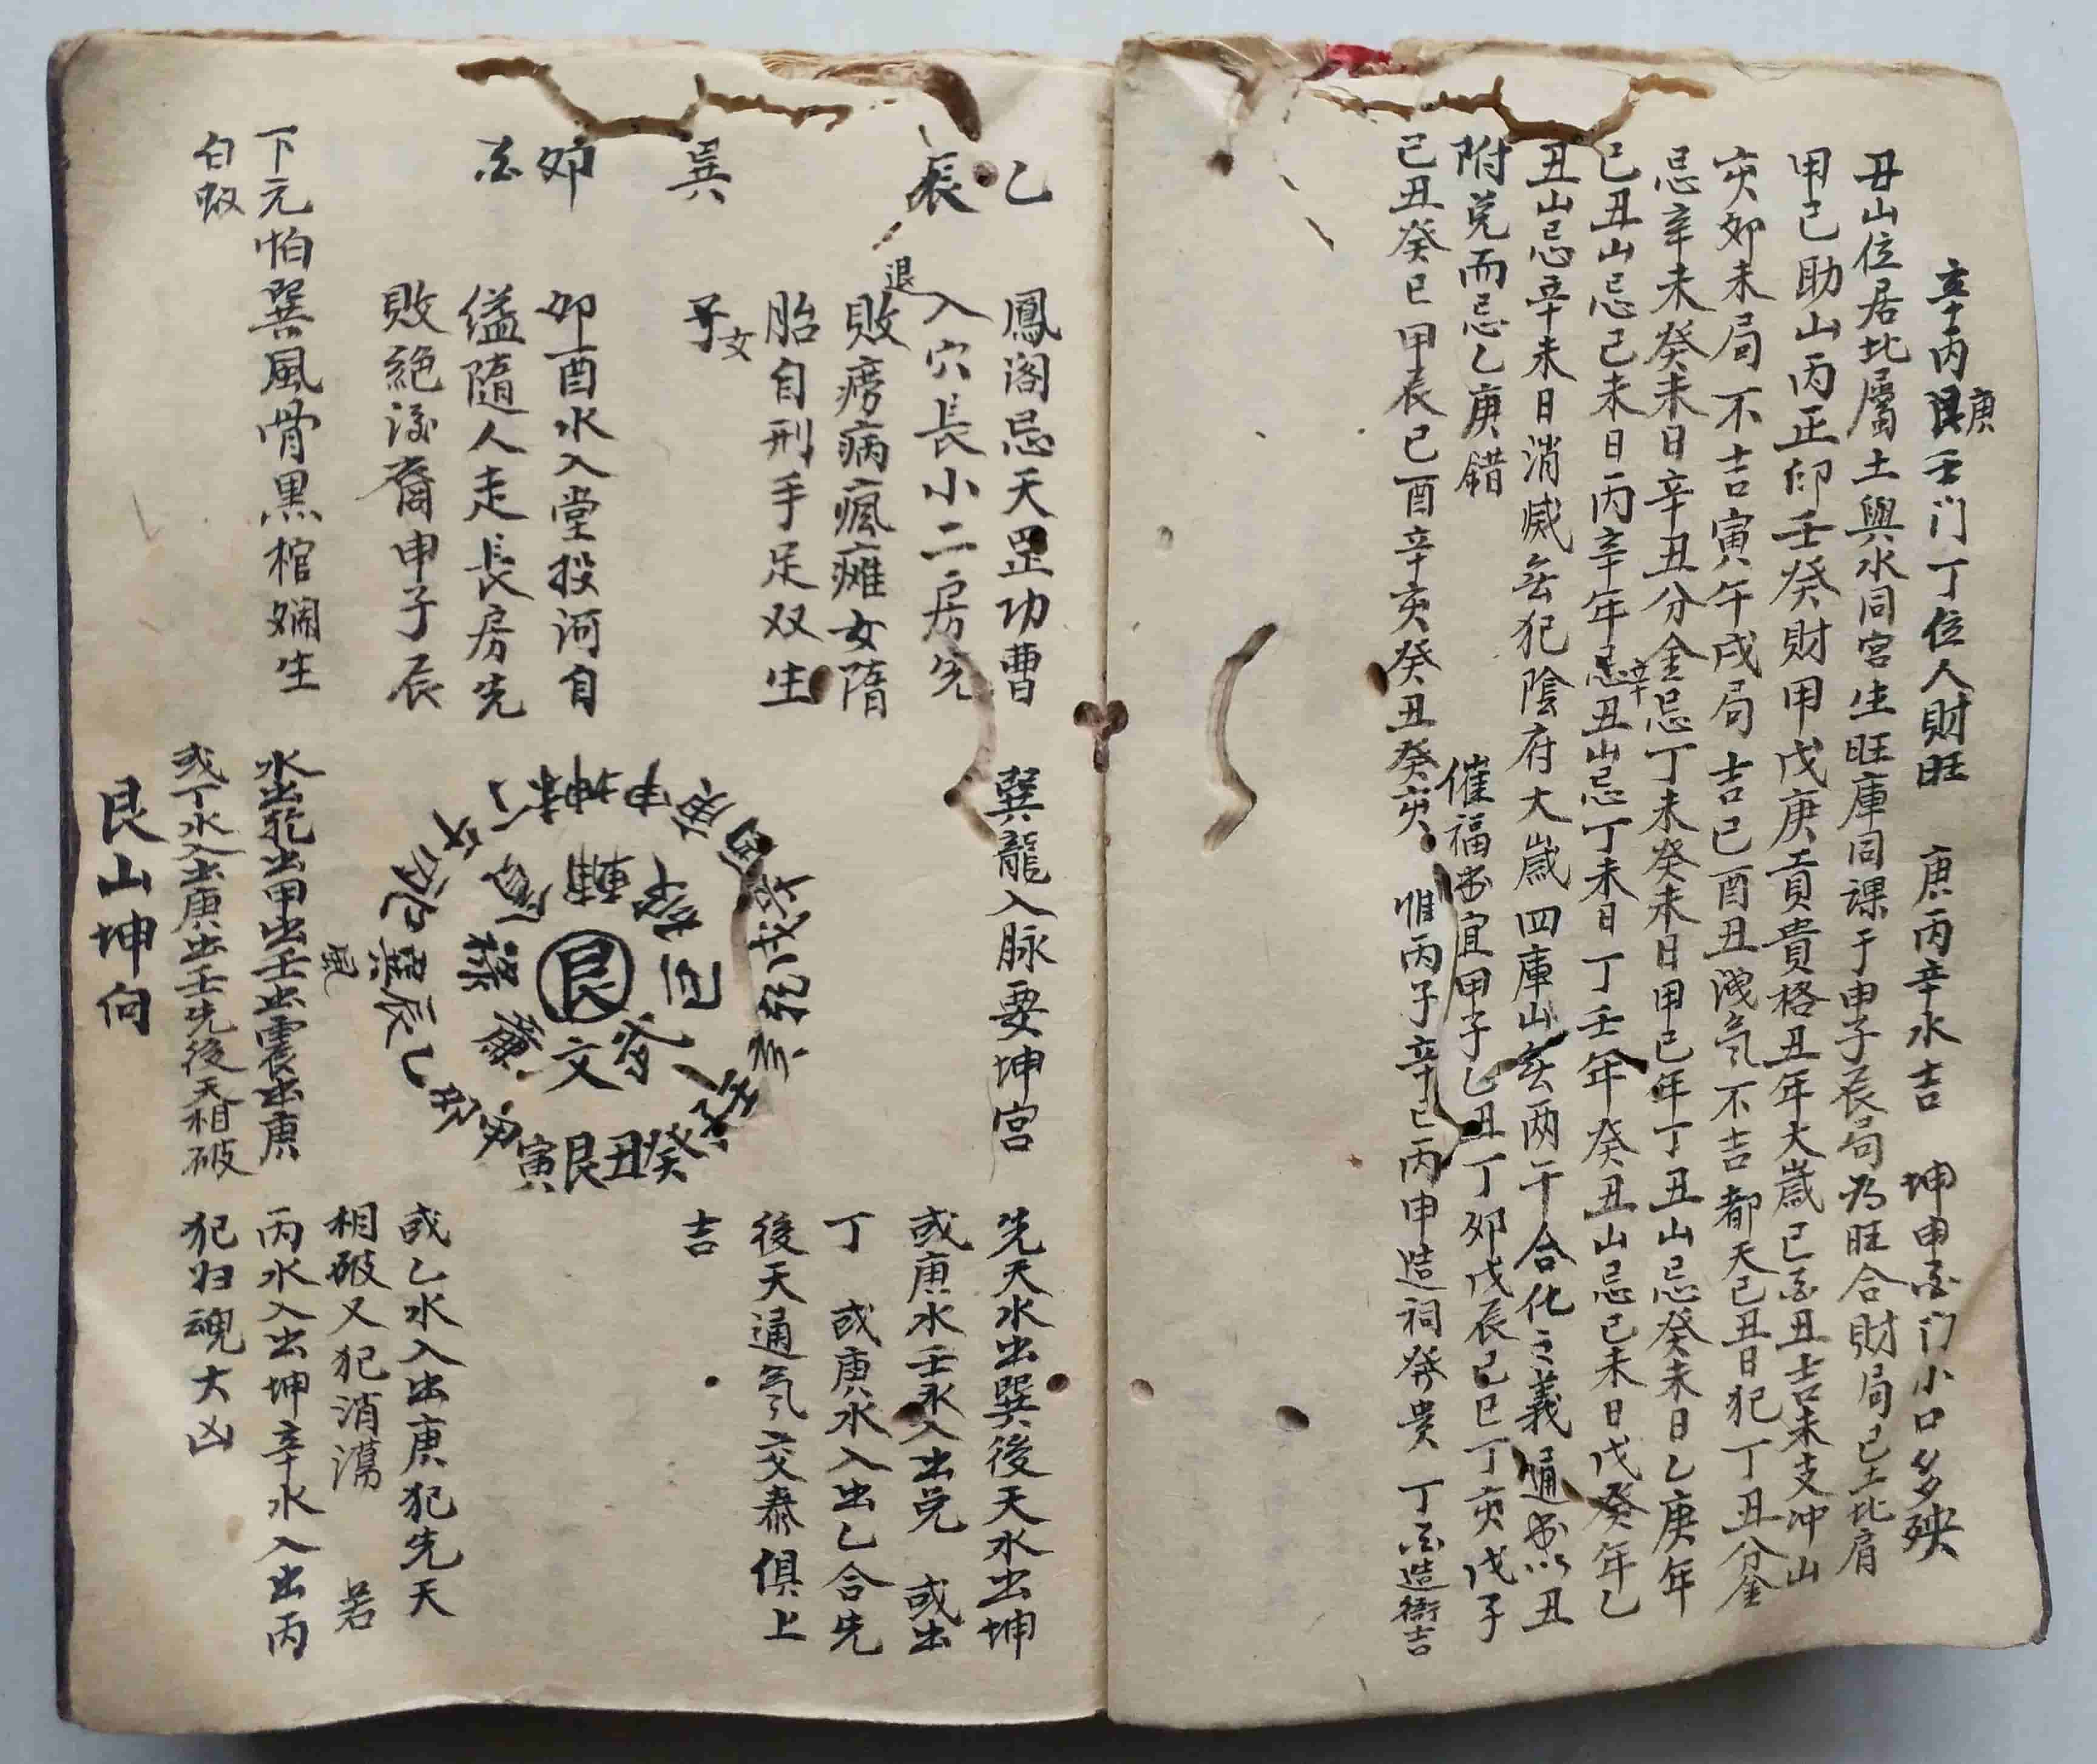 辛丙艮庚壬门丁位人財旺　庚丙辛水吉　坤申酉门小口多殃
丑山位居北屬土與水同宮生旺庫同課于申子辰局为旺合財局己土比肩
甲己助山丙正印壬癸財甲戊庚貢貴格丑年大歲巳酉丑吉未支冲山
亥卯未局不吉寅午戌局吉巳酉丑洩気不吉都天己丑日犯丁丑分金
忌辛未癸未日辛丑分金忌丁未癸未日甲己年丁丑山忌癸未日乙庚年
己丑山忌己未日丙辛年忌辛丑山忌丁未日丁壬年癸丑山忌己未日戊癸年乙
丑山忌辛未日消滅無犯陰府大歲四庫山無两干合化之義通書以丑
附兑而忌乙庚錯　催福书宜甲子乙丑丁卯戊辰己巳丁亥戊子
己丑癸巳甲辰己酉辛亥癸丑癸亥　惟丙子辛巳丙申造祠發貴　丁酉造衙吉
乙　鳳阁忌天罡功曹
辰　入穴長小二房先
退敗癆病瘋癱女隋
胎自刑手足双生
巽　子女
卯　卯酉水入堂投河自
酉　縊隨人走長房先
敗絕後裔申子辰
下元怕巽風骨黑棺爛生
白蚁
巽龍入脉要坤宫
艮
文
癸丑艮寅
水出乾出甲出壬出震出庚
或丁水入出庚出壬先後天相破
先天水出巽後天水出坤
或庚水壬水入出兑　或出
丁　或庚水入出乙合先
後天通氣交泰俱上
吉
或乙水入出庚犯先天
相破又犯消濁　若
丙水入出坤辛水入出丙
犯归魂大凶
艮山坤向